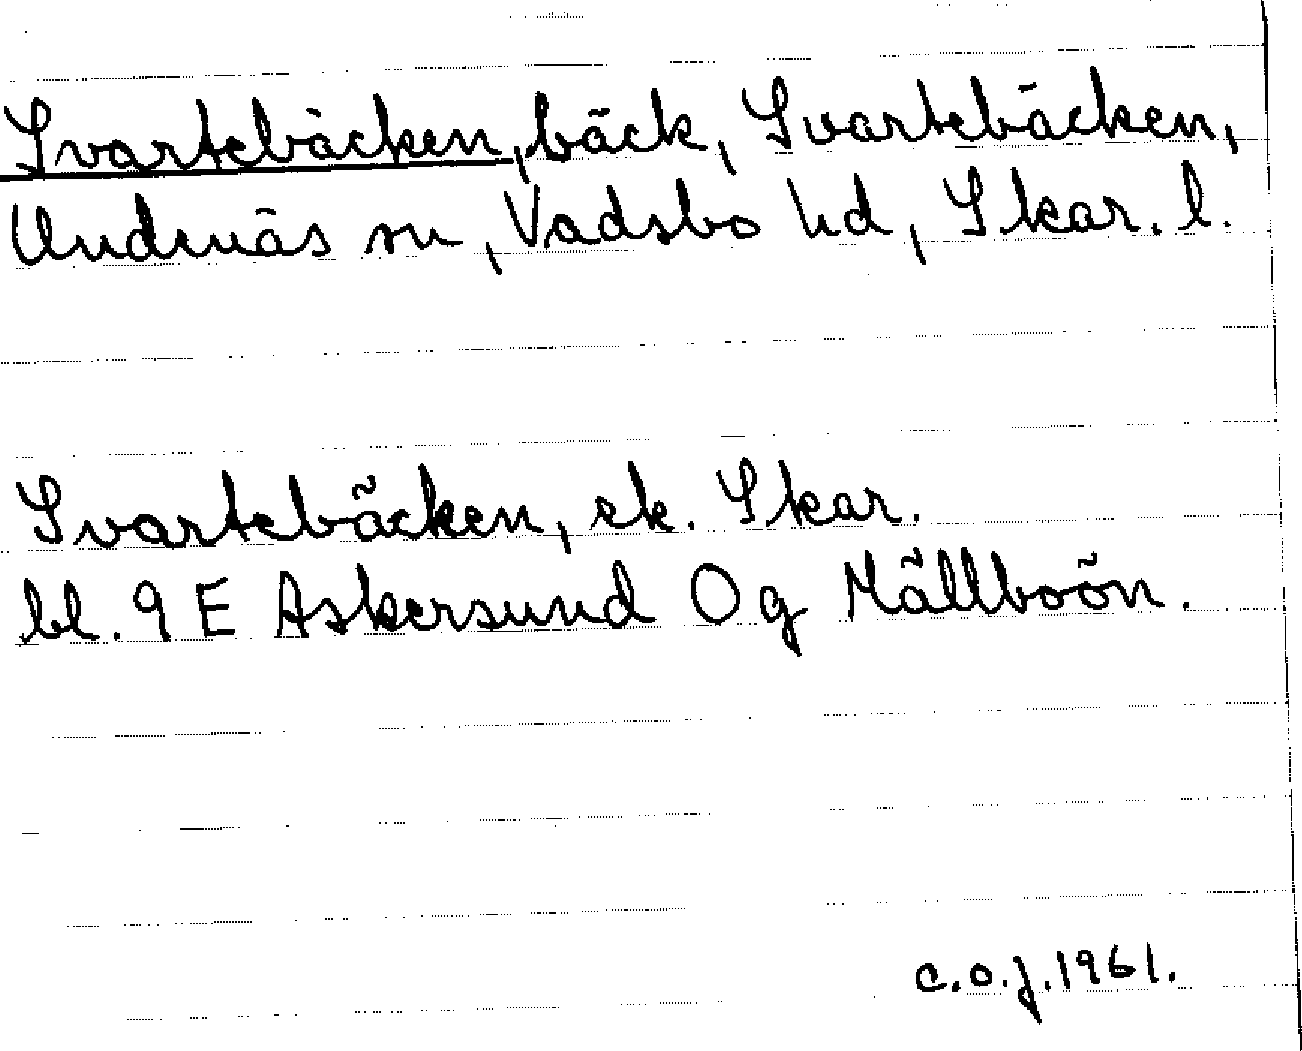 Svartebäcken, bäck, Svartebäcken,
Undenäs sn, Vadsbo hd, Skar. l.
Svartebäcken, ek. Skar.
bl. 9 E Askersund 0 g Mållboön.
c.o.j. 1961.